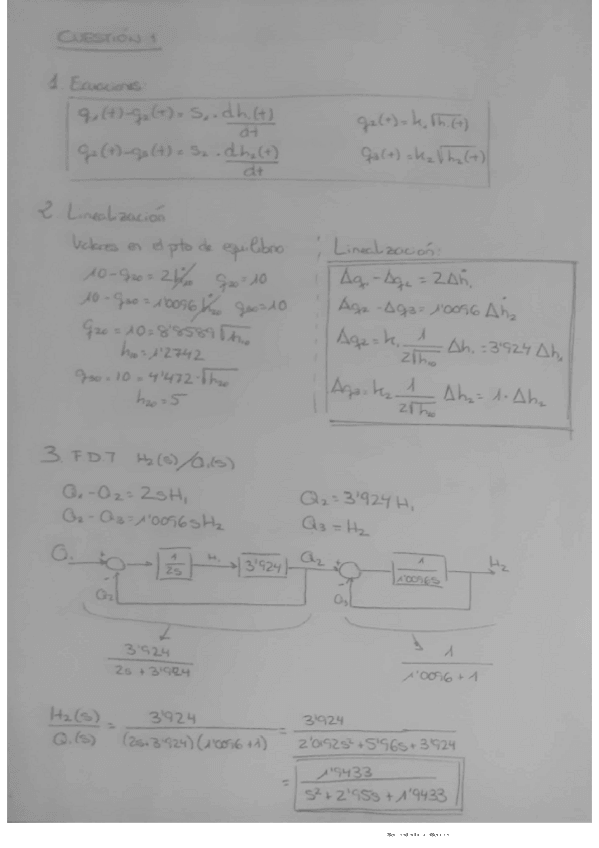 CUESTIÓN 1
1 Ecuaciones:
q₁(t)-q₂(t) = S₁ · dh₁(t)/dt    q₂(t) = k₁√h₁(t)
q₂(t)-q₃(t) = S₂ · dh₂(t)/dt    q₃(t) = k₂√h₂(t)
2 Linealización
Valores en el pto de equilibrio
10-q₂₀ = 2 ḣ₁₀    q₂₀ = 10
10-q₃₀ = 1'0096 ḣ₂₀    q₃₀ = 10
q₂₀ = 10 = 8'8589 √h₁₀
h₁₀ = 1'2742
q₃₀ = 10 = 4'472 · √h₂₀
h₂₀ = 5
Linealización:
Δq₁ - Δq₂ = 2Δḣ₁
Δq₂ - Δq₃ = 1'0096 Δḣ₂
Δq₂ = k₁ 1/(2√h₁₀) Δh₁ = 3'924 Δh₁
Δq₃ = k₂ 1/(2√h₁₀) Δh₂ = 1 · Δh₂
3 FDT H₂(s)/Q₁(s)
Q₁ - Q₂ = 2sH₁    Q₂ = 3'924 H₁
Q₂ - Q₃ = 1'0096sH₂    Q₃ = H₂
Q₁ + 1/2s H₁ 3'924 Q₂ + 1/1'0096s H₂
- Q₂    - Q₃
3'924/(2s + 3'924)    1/(1'0096 + 1)
H₂(s)/Q₁(s) = 3'924/((2s+3'924)(1'0096+1)) = 3'924/(2'0192s² + 5'96s + 3'924)
= 1'9433/(s² + 2'95s + 1'9433)